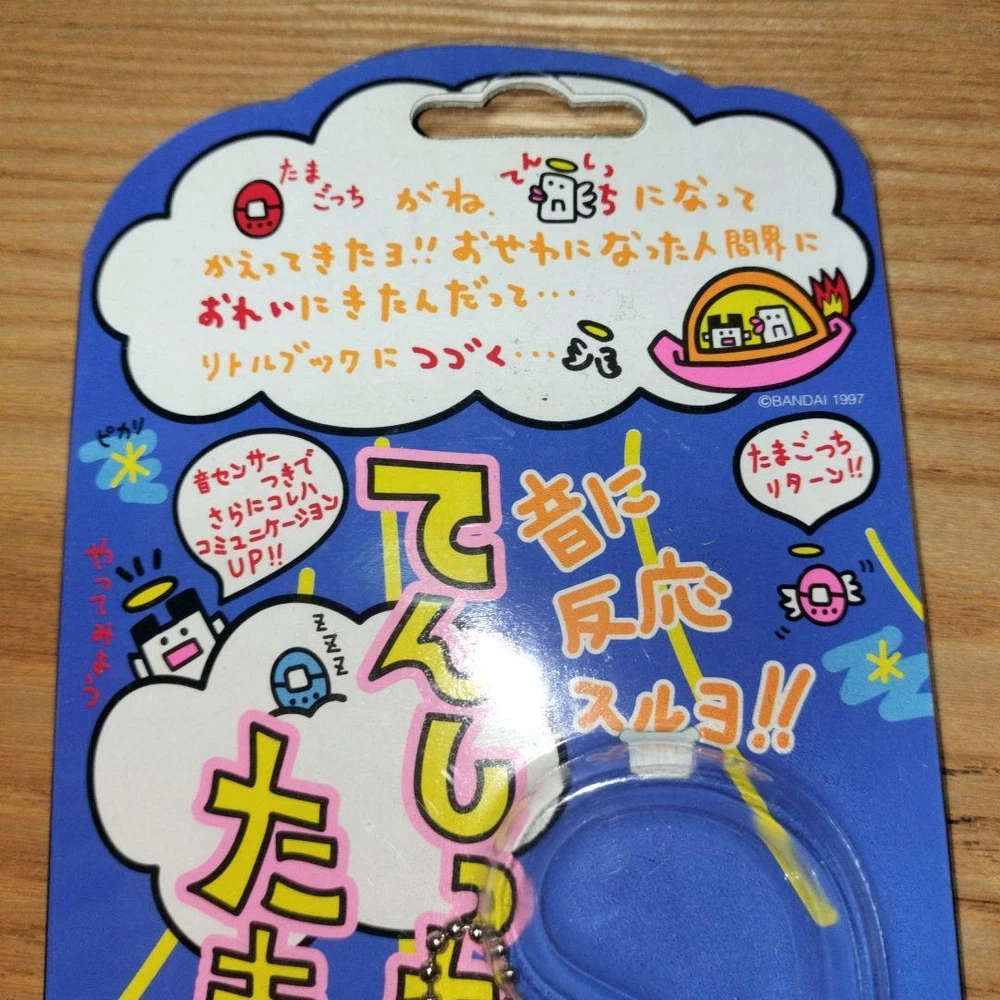 たまごっちがね、てんしっちになって
かえってきたヨ!!おせわになった人間界に
おれいにきたんだって…
リトルブックにつづく…
©BANDAI 1997
ピカリ
音センサー
つきで
さらにコレハ
コミュニケーション
UP!!
やってみよう
たまごっち
リターン!!
zzz
音に
反応
スルヨ!!
てんしっち
たま